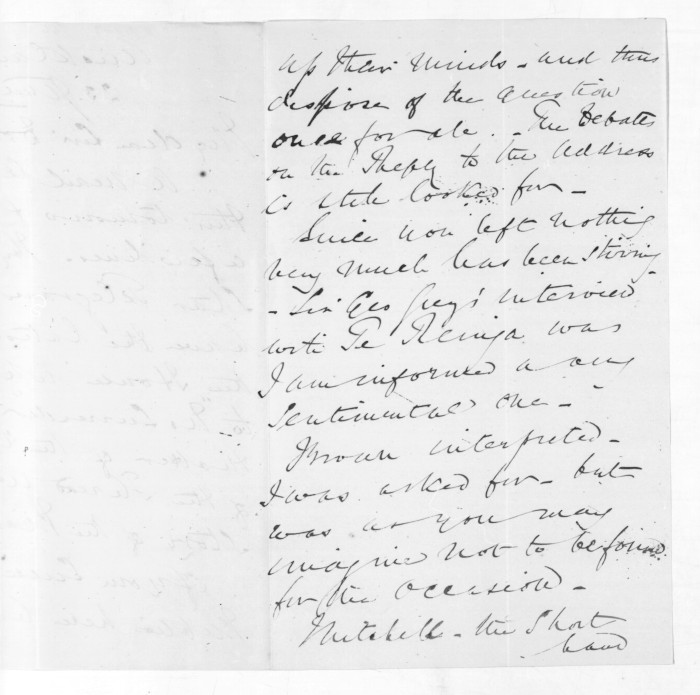 up their minds - and thus
dispose of the question
once for all. - The Debate
on the Reply to the Address
is still looked for -
Since you left nothing
very much has been stirring -
- Sir Geo Grey's interview
with Te Reinga was
I am informed a very
Sentimental one -
Brown interpreted -
I was asked for - but
was as you may
imagine not to be found
for the occasion -
Mitchell - the Short
hand